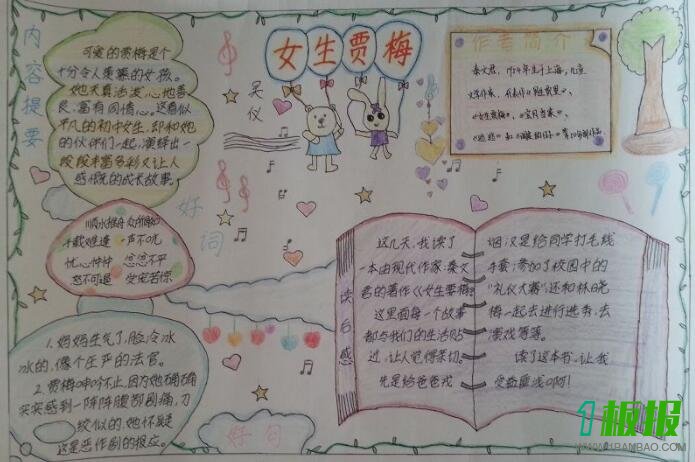 内容提要
可爱的贾梅是个
十分令人羡慕的女孩。
她天真活泼、心地善
良、富有同情心。这看似
平凡的初中女生,却和她
的伙伴们一起,演绎出一
段段丰富多彩又让人
感慨的成长故事。
女生贾梅
吴仪
作者简介
秦文君,1954年生于上海,儿童
文学作家,代表作《男生贾里》、
《女生贾梅》、《宝贝当家》、
好词
顺水推舟 众所周知
千载难逢 一声不吭
忧心忡忡 忿忿不平
怒不可遏 安安若惊
1.妈妈生气了,脸冷冰
冰的,像个庄严的法官。
2.贾梅呻吟不止,因为她确确
实实感到一阵阵腹部剧痛,刀
绞似的,她怀疑
这是恶作剧的报应。
好句
读后感
这几天,我读了
一本由现代作家:秦文
君的著作《女生贾梅》
这里面每一个故事
都与我们的生活贴
近,让人觉得亲切。
先是给爸爸戒
烟,又是给同学打毛线
手套;参加了校园中的
"礼仪大赛"还和林晓
梅一起去进行选秀,去
演戏等等。
读了这本书,让我
受益匪浅啊!
1板报
WWW.1BANBAO.COM